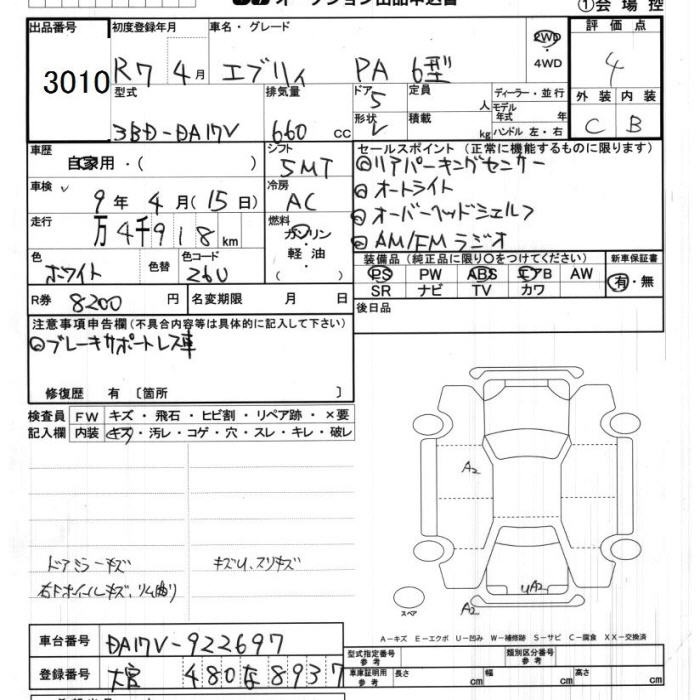 オークション出品申込書
①会場控
出品番号 3010
初度登録年月 R7 4月
車名・グレード エブリィ PA 6型
2WD
4WD
評価点 4
外装 C 内装 B
型式 3BD-DA17V
排気量 660 cc
ドア 5
形状 V
定員 人
積載 kg
ディーラー・並行
モデル年式 年式
ハンドル 左・右
車歴 自家用・( )
シフト 5MT
セールスポイント (正常に機能するものに限ります)
◎リアパーキングセンサー
◎オートライト
◎オーバーヘッドシェルフ
◎AM/FMラジオ
車検 9年 4月 (15日)
冷房 AC
走行 万4千918km
燃料 ガソリン・軽油・( )
色 ホワイト 色替
色コード 26U
装備品 (純正品に限り○をつけてください)
新車保証書 有・無
PS PW ABS エアB AW
SR ナビ TV カワ
R券 8200円
名変期限 月 日
後日品
注意事項申告欄(不具合内容等は具体的に記入して下さい)
◎ブレーキサポートレス車
修復歴 有 〔箇所 〕
検査員記入欄
FW キズ・飛石・ヒビ割・リペア跡・×要
内装 キズ・汚レ・コゲ・穴・スレ・キレ・破レ
A2
ドアミラーキズ キズU、スリキズ
右Fホイルキズ、リム曲り
UA2
スペア
A2
A-キズ E-エクボ U-凹み W-補修跡 S-サビ C-腐食 XX-交換済
車台番号 DA17V-922697
型式指定番号 参考
類別区分番号 参考
登録番号 大宮 480 な 8937
車庫証明用 参考
長さ cm 幅 cm 高さ cm